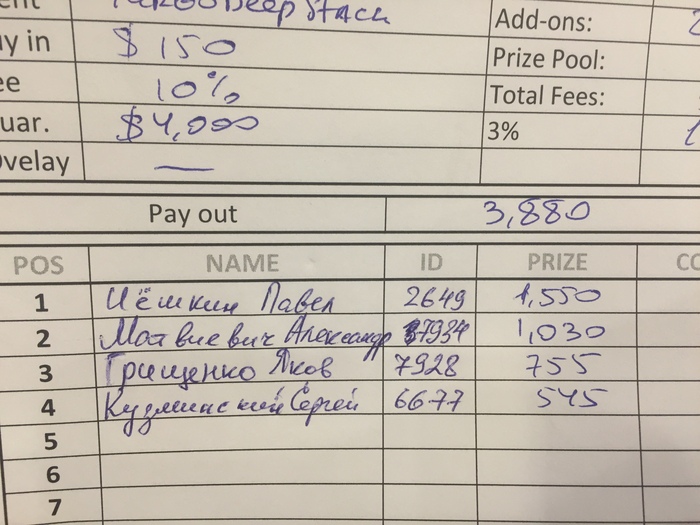 Deep Stack Add-ons:
$ 150 Prize Pool:
10% Total Fees:
$4,000 3%
—
Pay out 3,880
POS NAME ID PRIZE
1 Павел 2649 1,550
2 Матвиевич Александр 1,030
3 Грищенко Яков 7928 755
4 Кузминский Сергей 6677 545
5
6
7